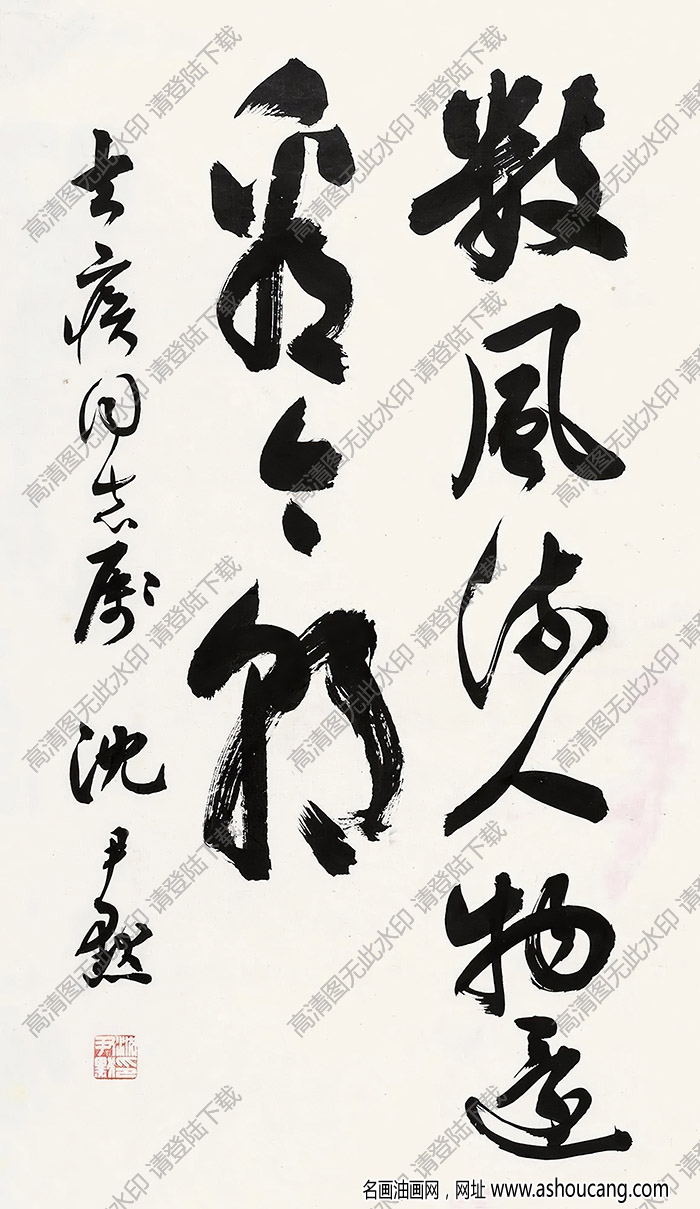 數風流人物還
看今朝
去疾同志屬 沈尹默
沈尹默印
高清图无此水印 请登陆下载
名画油画网，网址 www.ashoucang.com